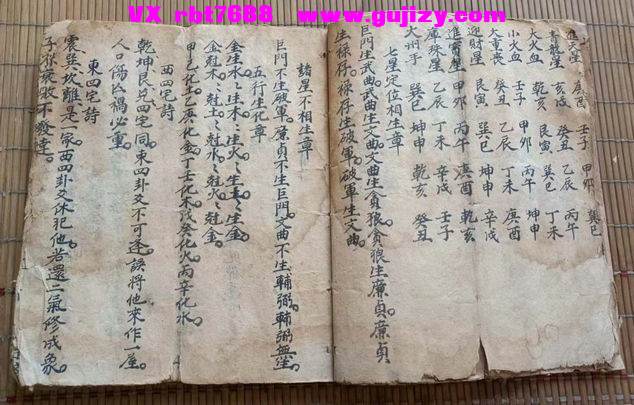 VX rbt7688 www.gujizy.com
進天星 庚酉 壬子 甲卯 巽巳
青龍星 亥戌 癸丑 乙辰 丙午
小火血 乾亥 艮寅 巽巳 丁未
大火血 壬子 甲卯 丙午 坤申
大重喪 癸丑 乙辰 丁未 庚酉
迎財星 艮寅 巽巳 坤申 辛戌
進寶星 甲卯 丙午 庚酉 乾亥
庫珠星 乙辰 丁未 辛戌 壬子
大州牢 巽巳 坤申 乾亥 癸丑
七星定位相生章
巨門生武曲武曲生文曲。文曲生貪狼貪狼生廉貞。廉貞
生祿存。祿存生破軍。破軍生文曲。
諸星不相生章
巨門不生破軍。廉貞不生巨門文曲不生輔弼。輔弼無生。
五行生化章
金生水、水生木、木生火、火生土、土生金。
金尅木、木尅土、土尅水、水尅火、火尅金。
甲己化土乙庚化金丁壬化木戊癸化火丙辛化水。
西四宅詩
乾坤艮兌四宅同。東四卦爻不可逢。誤將他來作一屋。
人口傷亡禍必重。
東四宅詩
震巽坎離是一家。西四卦爻休犯他。若還二氣修成象。
子孫衰敗不發達。